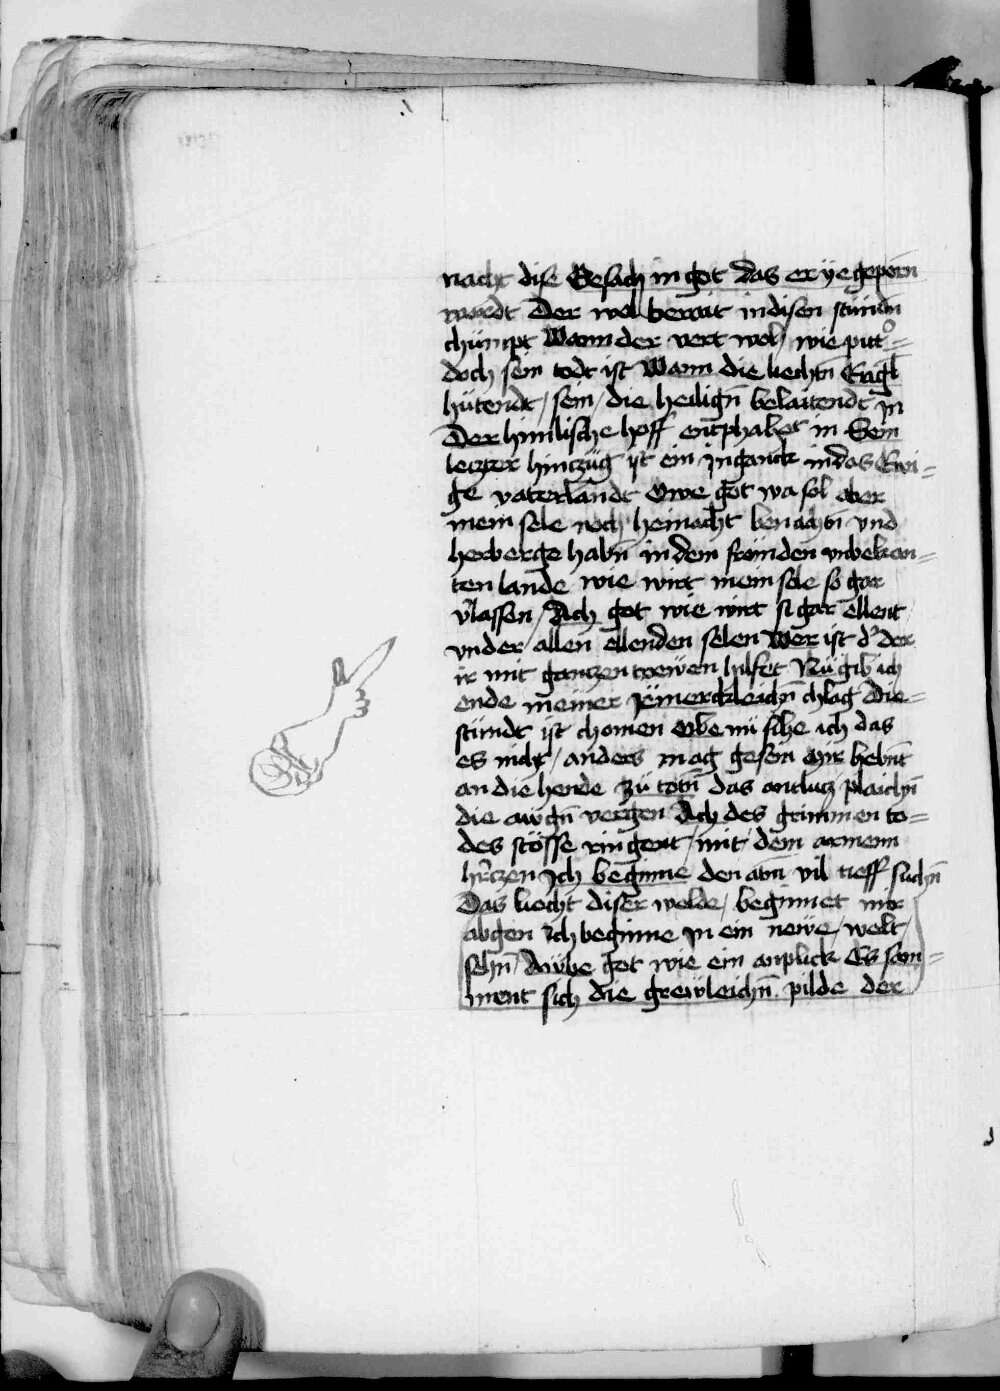 nacht dise Gesach in got das er ye geporn
wordt Der wol berait in disen stundn
chümpt Wann der vert wol / wie pitt° =
doch sein todt ist Wann die liechtn Engl
hütendt / sein / die heilign belaitendt in
Der himlische hoff entphahet in Sein
leczter hinczüg ist ein inganck in das Ewi =
ge vaterlandt Owe got wa sol aber
mein sele noch heinacht benachtn vnd
herberge habn in dem frömden vnbekan =
ten lande wie wirt mein sele so gar
v̓lassen / Ach got wie wirt si gar ellent
vnder allen ellenden selen Wer ist d̓ der
ir mit ganczen trewen hilfet Nü gib ich
ende meiner jemerckleichn chlag Die =
stündt ist chomen Owe nü sihe ich das
es nicht / anders mag gesein Mir hebnt
an die hende zü totn das antlucz plaichn
die awgn vergen Ach des grimmen to =
des stösse ringent / mit / dem armenn
herczen Ich beginne den atm vil tieff suchn
Das liecht diser welde / beginnet mir
abgen Ich beginne in ein newe / welt
sehn / Awbe got wie ein anplick Es sam =
ment sich die grewleichn pilde der